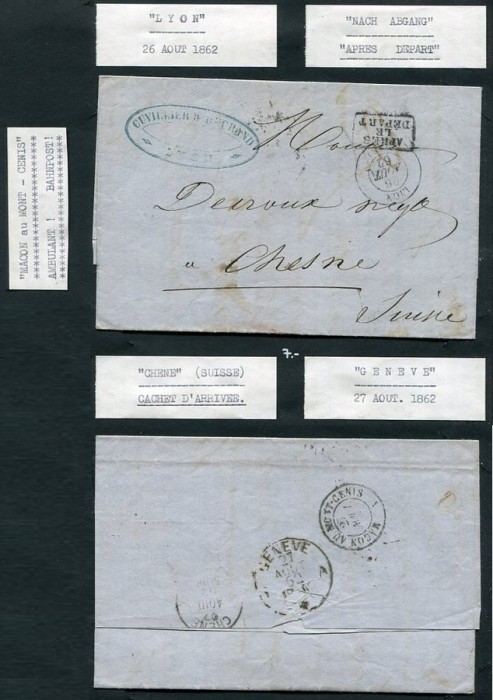 "LYON"
26 AOUT 1862
"NACH ABGANG"
"APRES DEPART"
"MACON au MONT - CENIS"
**********************
AMBULANT ! BAHNPOST!
**********************
CUVILLIER &
APRES
LE
DEPART
LYON
Deroux négt
a Chesne
Suisse
7.-
"CHENE" (SUISSE)
CACHET D'ARRIVEE.
"GENEVE"
27 AOUT. 1862
MACON AU MONT-CENIS
GENEVE
27
AOUT
CHENE
AOUT